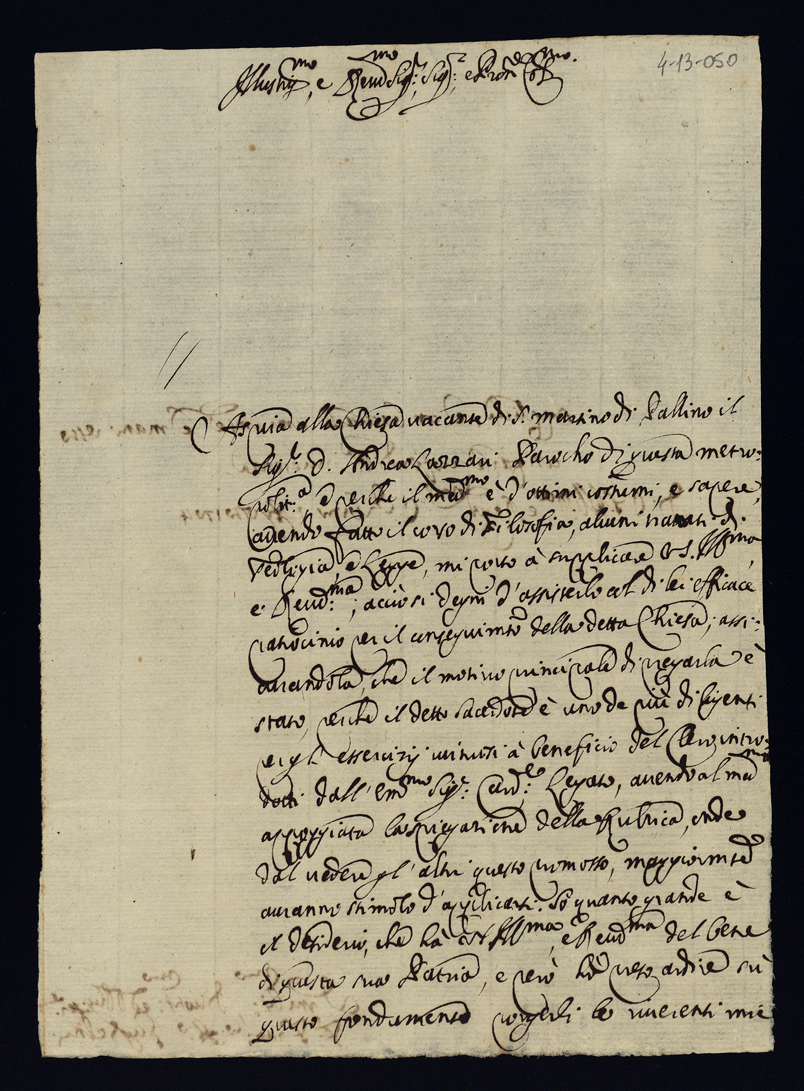 4-13-050
Illustr.mo, e Reu.mo Sig.r, Sig.r, e Pron. Col.mo
Aspira alla Chiesa uacante di S. Martino di Pallino il
Sig.r D. Andrea Lazzari Parocho di questa metro-
polit.a e perche il med.mo è d'ottimi costumi, e sapere,
auendo fatto il corso di Filosofia, alcuni trattati di
Teologia, e Legge, mi porto à supplicare V.S. Ill.ma
e Reud.ma, acciò si degni d'assisterlo col di lei efficace
patrocinio per il conseguimto della detta Chiesa; assi-
curandola, che il motiuo principale di pregarla è
stato, perche il detto Sacerdote è uno de più diligenti
per gl'essercizij uirtuosi à beneficio del Clero intro-
dotti dall'Em.mo Sig.r Card.le Legato, auendo al med.mo
appoggiata la spiegazione della Rubrica, onde
dal uedere gl'altri questo promosso, maggiormte
auranno stimolo d'applicarsi. Sò quanto grande è
il desiderio, che hà V.S. Ill.ma, e Reud.ma del bene
di questa sua Patria, e però hò preso ardire sù
questo fondamento porgerli le riuerenti mie